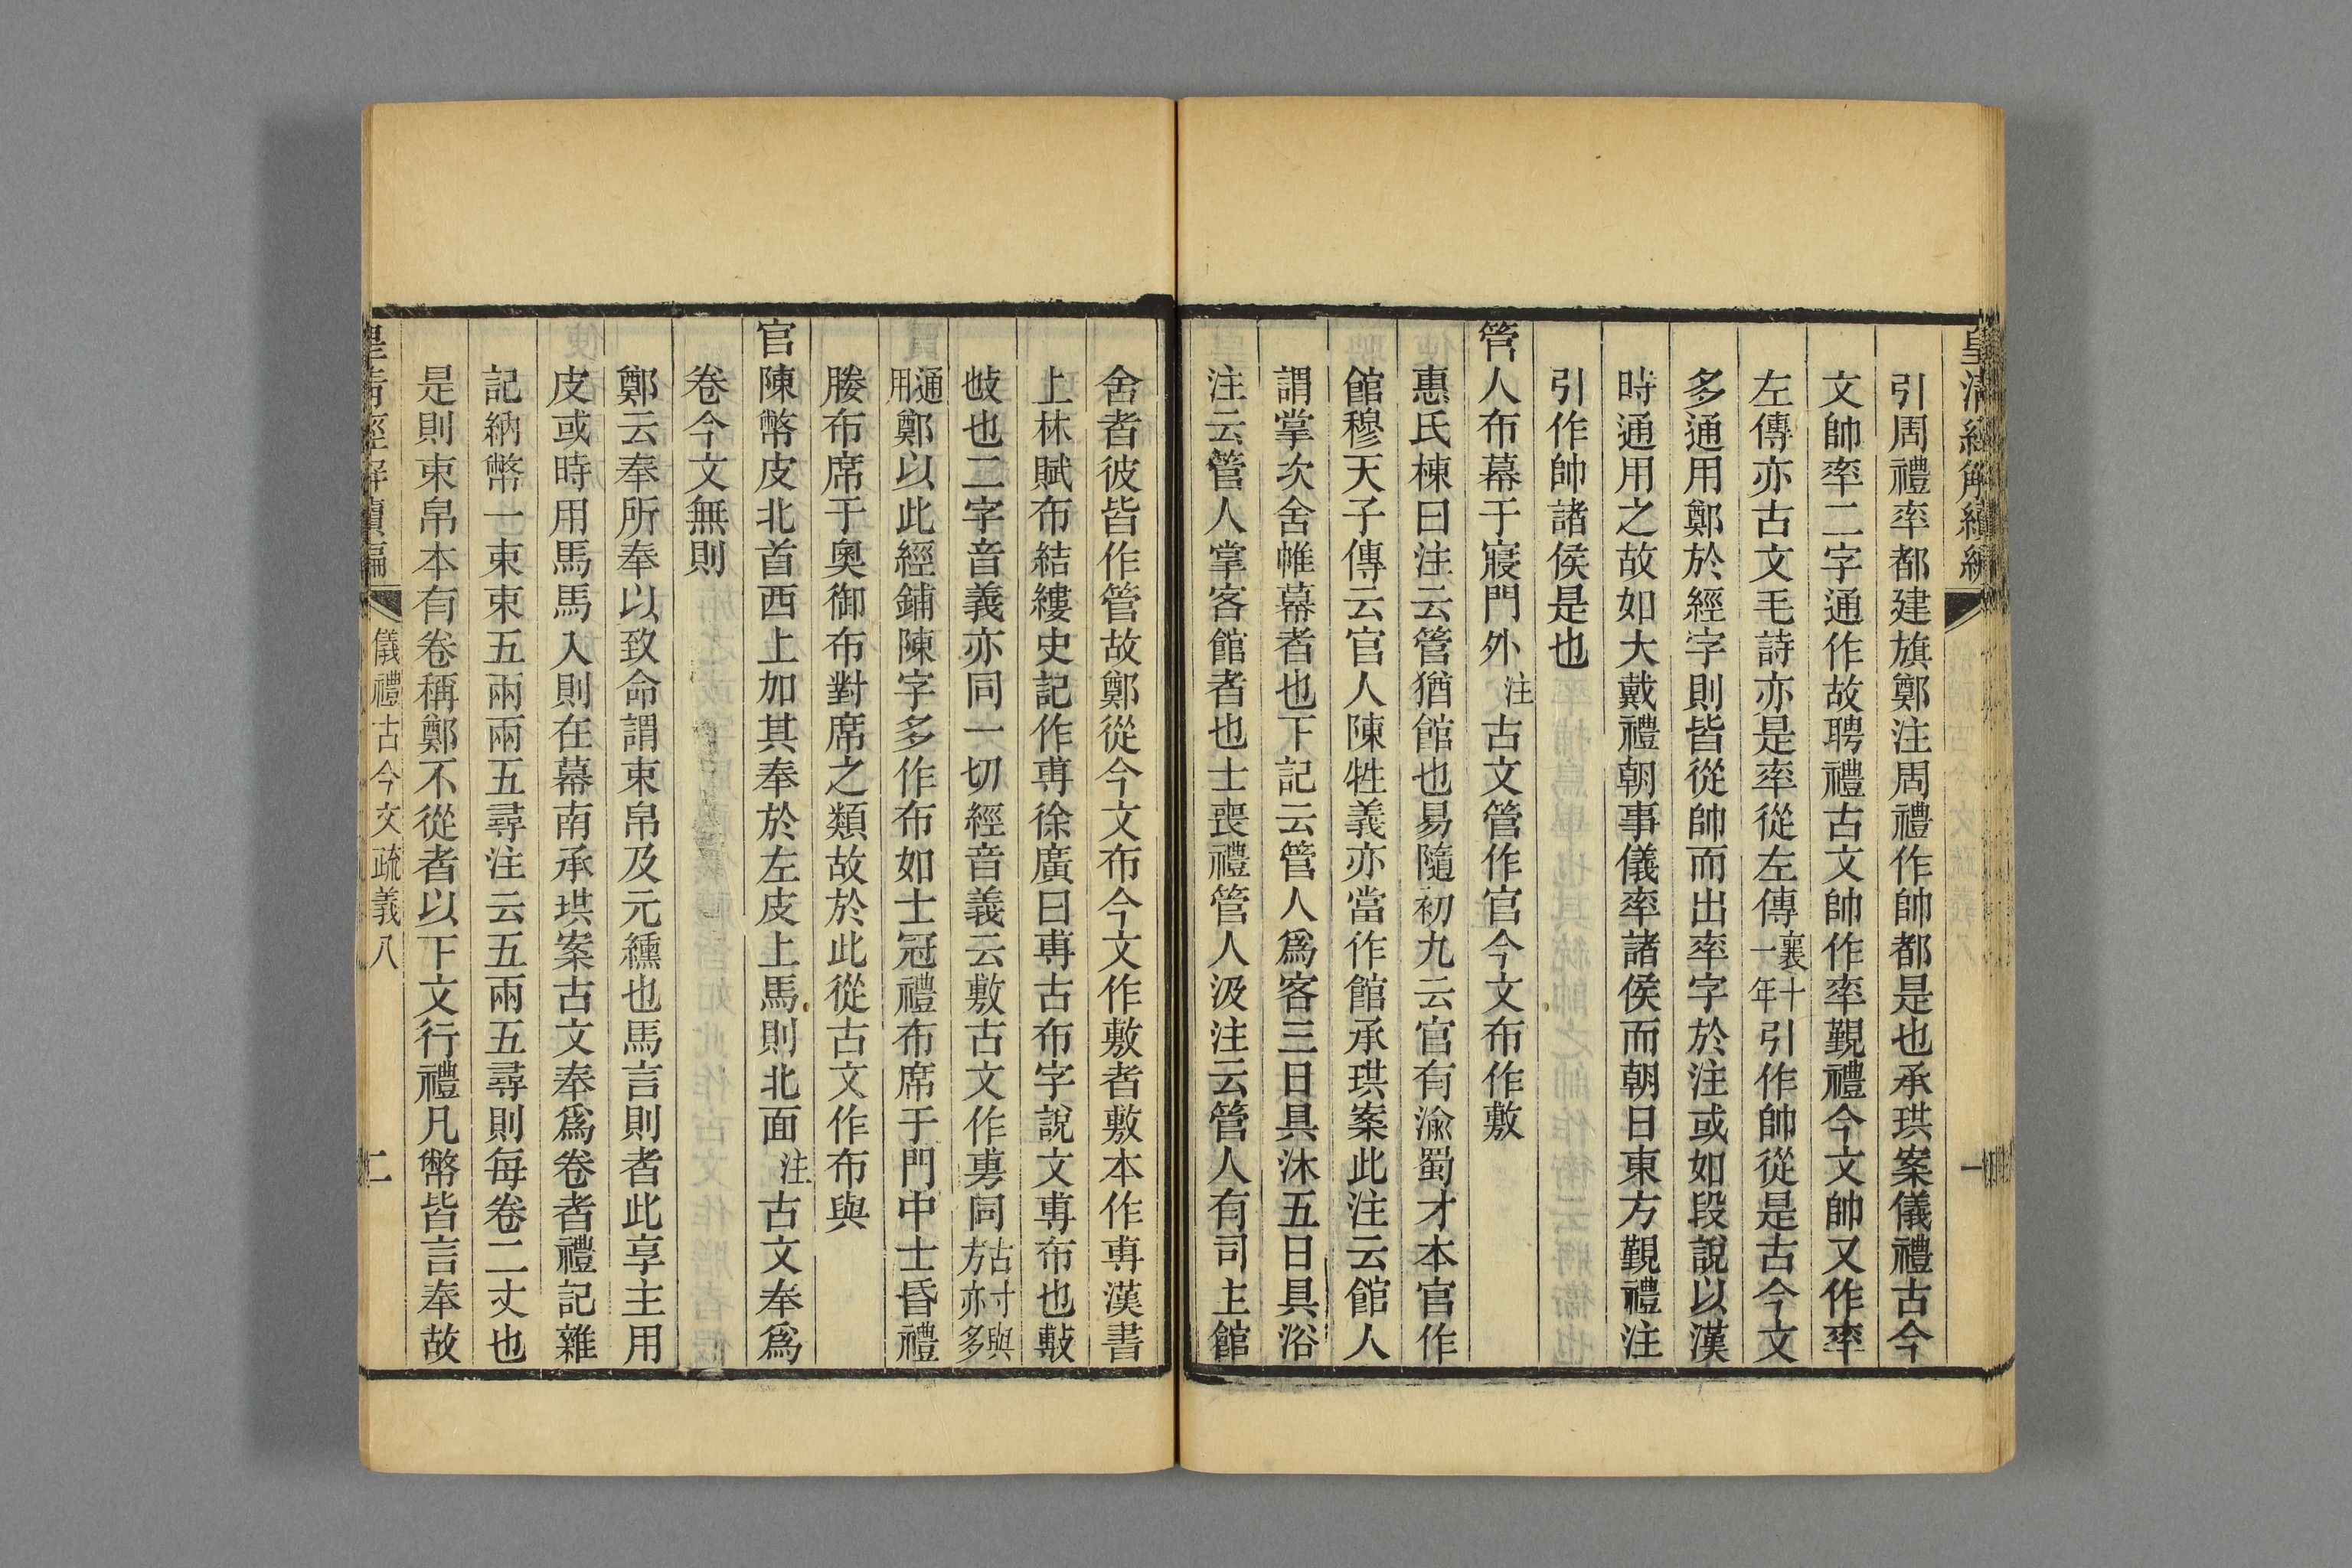 皇清經解續編
一
引周禮率都建旗鄭注周禮作帥都是也承珙案儀禮古今
文帥率二字通作故聘禮古文帥作率覲禮今文帥又作率
左傳亦古文毛詩亦是率從左傳襄十一年引作帥從是古今文
多通用鄭於經字則皆從帥而出率字於注或如段說以漢
時通用之故如大戴禮朝事儀率諸侯而朝日東方覲禮注
引作帥諸侯是也
管人布幕于寢門外注古文管作官今文布作敷
惠氏棟曰注云管猶館也易隨初九云官有渝蜀才本官作
館穆天子傳云官人陳牲義亦當作館承珙案此注云館人
謂掌次舍帷幕者也下記云管人爲客三日具沐五日具浴
注云管人掌客館者也士喪禮管人汲注云管人有司主館
舍者彼皆作管故鄭從今文布今文作敷者敷本作尃漢書
上林賦布結縷史記作尃徐廣曰尃古布字說文尃布也㪇
㪇也二字音義亦同一切經音義云敷古文作旉同古寸與方亦多
通用鄭以此經鋪陳字多作布如士冠禮布席于門中士昏禮
媵布席于奧御布對席之類故於此從古文作布與
官陳幣皮北首西上加其奉於左皮上馬則北面注古文奉爲
卷今文無則
鄭云奉所奉以致命謂束帛及元纁也馬言則者此享主用
皮或時用馬馬入則在幕南承珙案古文奉爲卷者禮記雜
記納幣一束束五兩兩五尋注云五兩五尋則每卷二丈也
是則束帛本有卷稱鄭不從者以下文行禮凡幣皆言奉故
皇清經解續編
儀禮古今文疏義八
二